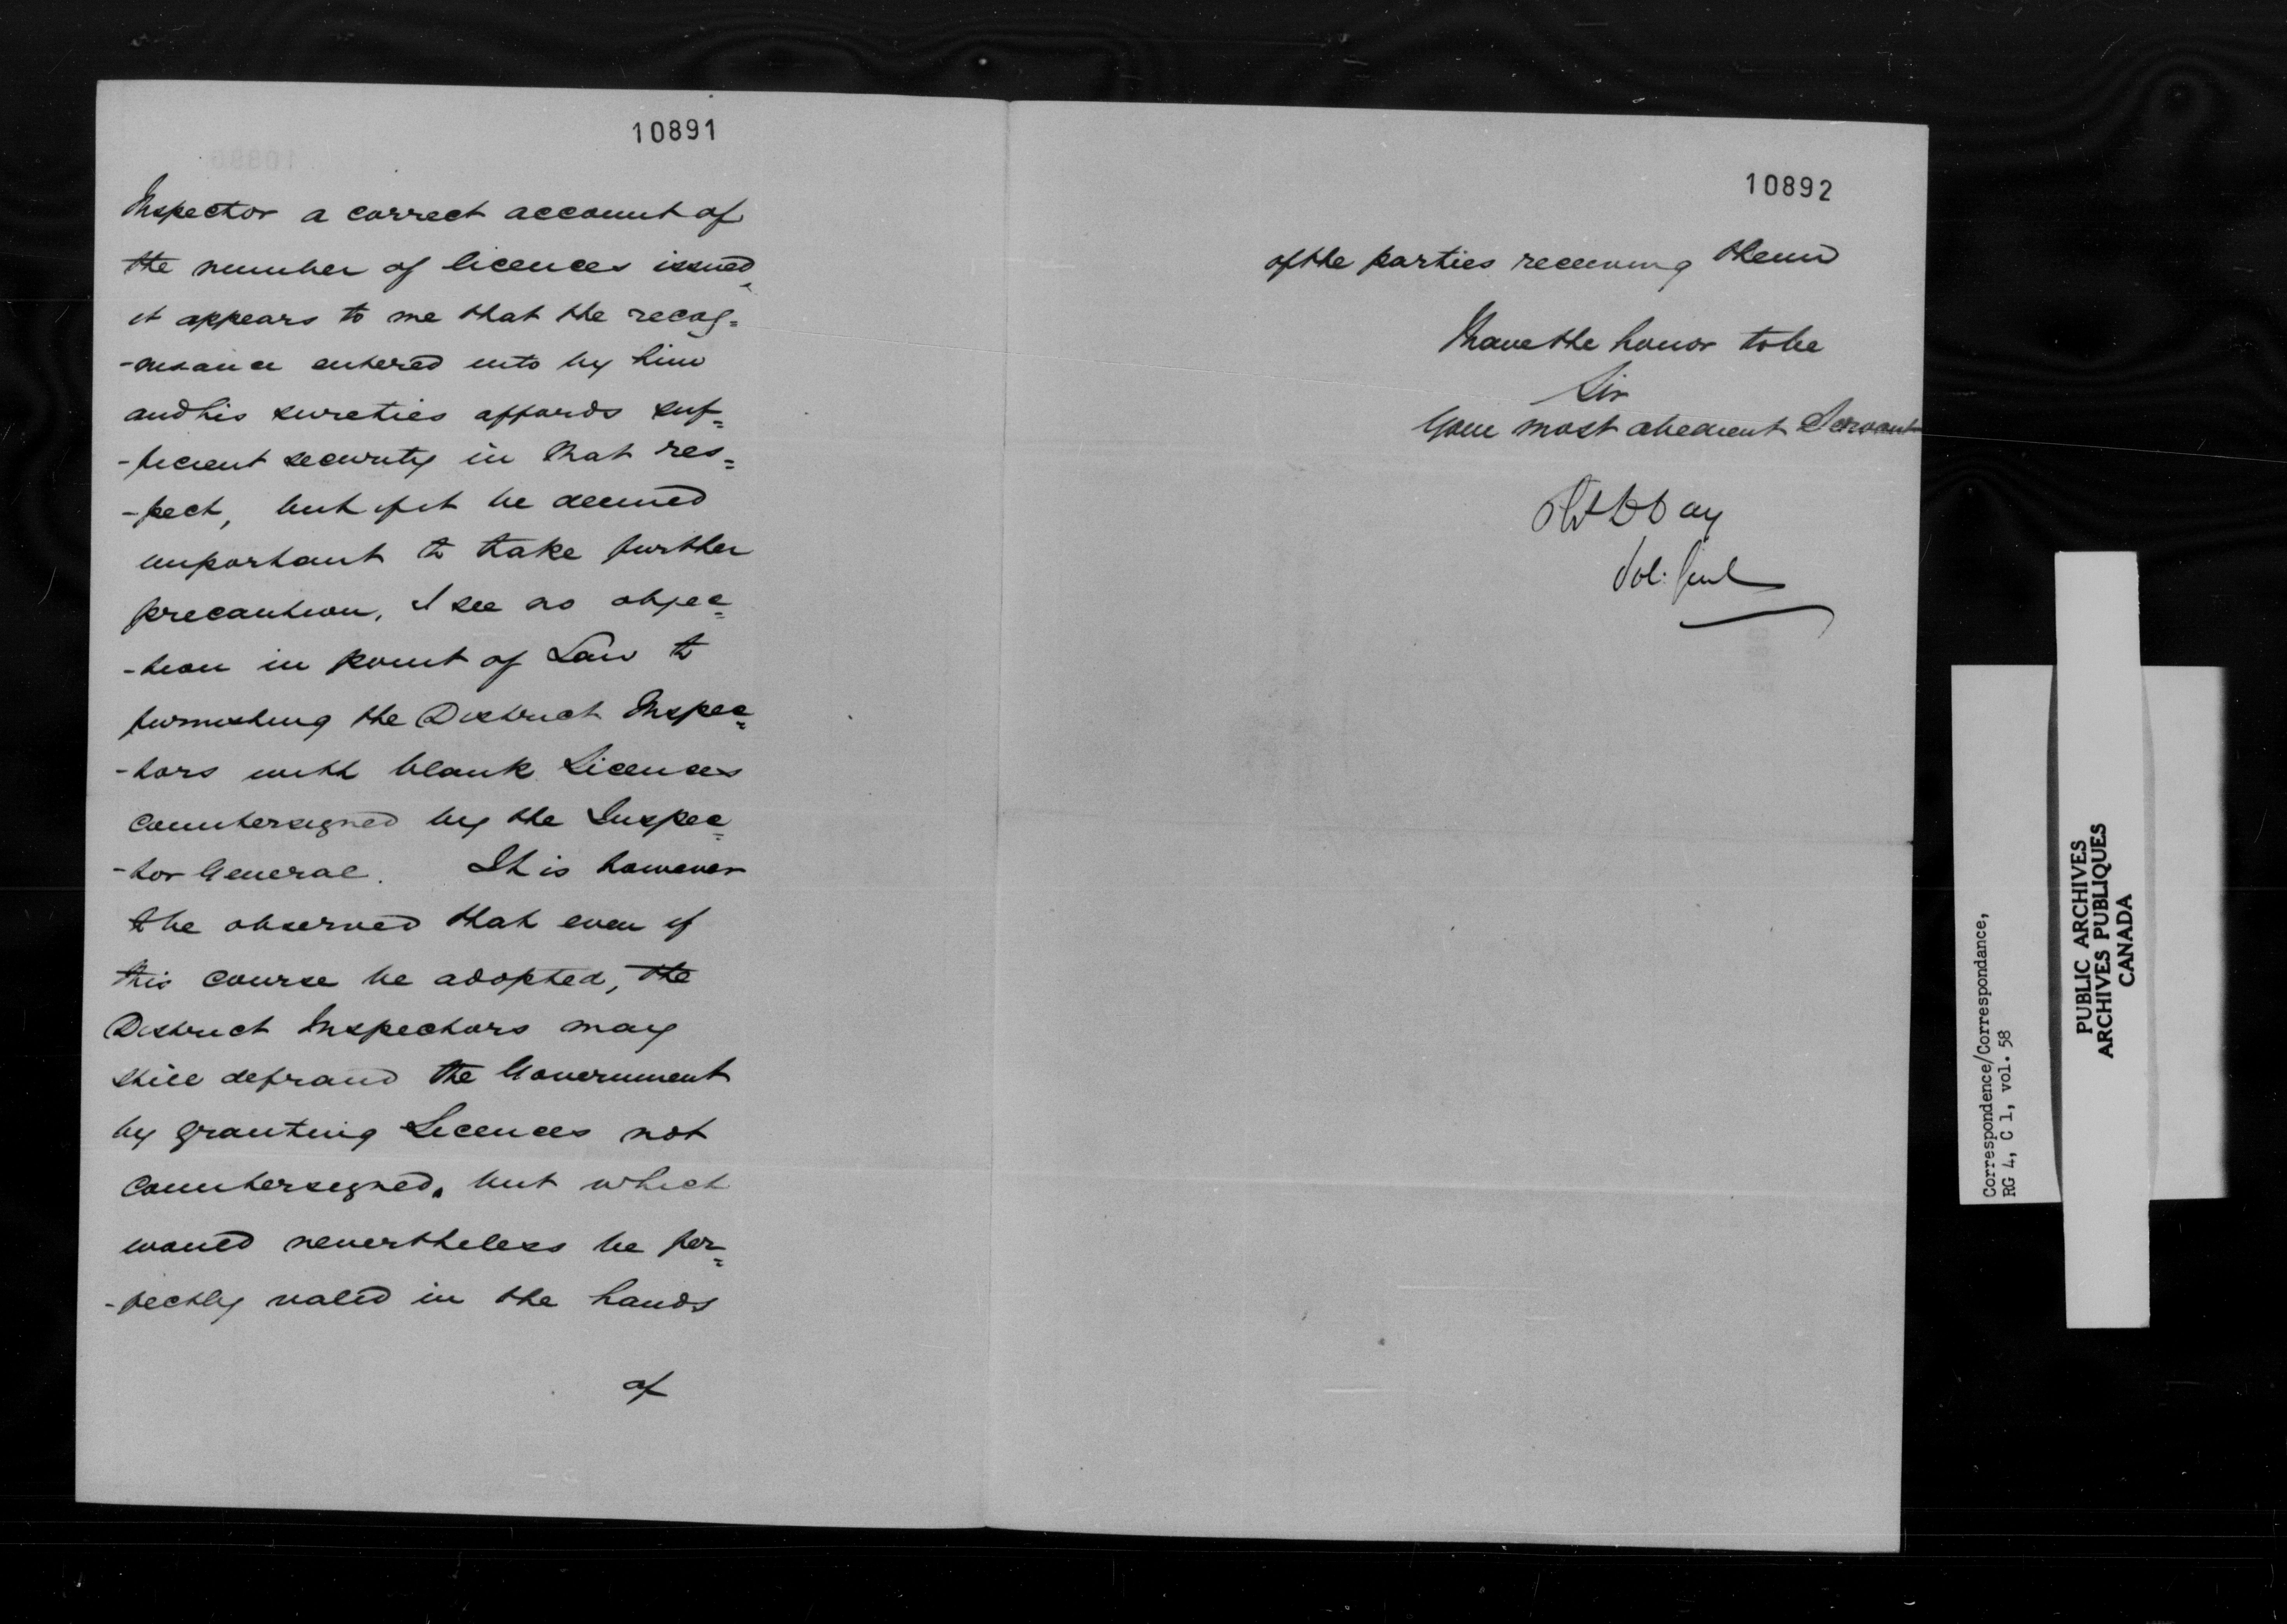 10891
Inspector a correct account of
the number of licences issued,
it appears to me that the recog=
-nisance entered into by him
and his sureties affords suf=
-ficient security in that res=
-pect, but if it be deemed
important to take further
precaution, I see no objec=
-tion in point of Law to
furnishing the District Inspec=
-tors with blank Licences
countersigned by the Inspec=
-tor General. It is however
to be observed that even if
this course be adopted, the
District Inspectors may
still defraud the Government
by granting Licences not
countersigned, but which
would nevertheless be per=
-fectly valid in the hands
of
10892
of the parties receiving them
I have the honor to be
Sir
Your most obedient Servant
Day
Sol: Genl
Correspondence/Correspondance,
RG 4, C 1, vol. 58
PUBLIC ARCHIVES
ARCHIVES PUBLIQUES
CANADA